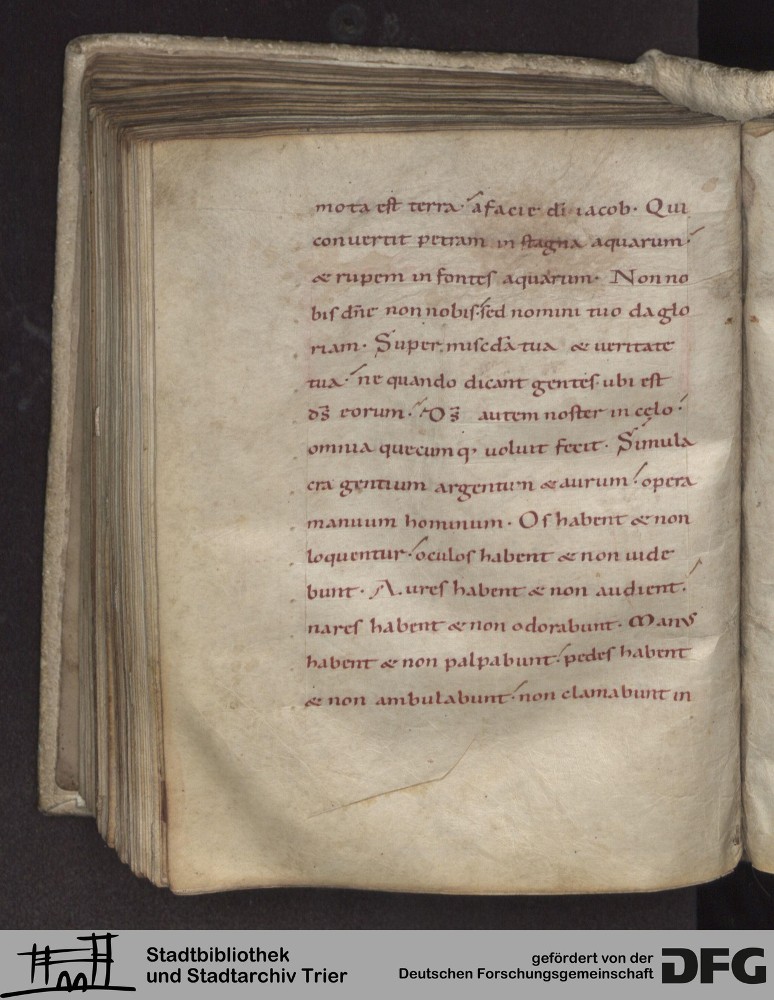 mota est terra. a facie di iacob. Qui
convertit petram in stagna aquarum.
& rupem in fontes aquarum. Non no
bis dñe non nobis. sed nomini tuo da glo
riam. Super miscd̃a tua & ueritate
tua. ne quando dicant gentes ubi est
ds eorum. Ds autem noster in celo.
omnia quecumq; uoluit fecit. Simula
cra gentium argentum & aurum. opera
manuum hominum. Os habent & non
loquentur. oculos habent & non uide
bunt. Aures habent & non audient.
nares habent & non odorabunt. Manus
habent & non palpabunt. pedes habent
& non ambulabunt. non clamabunt in
Stadtbibliothek
und Stadtarchiv Trier
gefördert von der
Deutschen Forschungsgemeinschaft
DFG